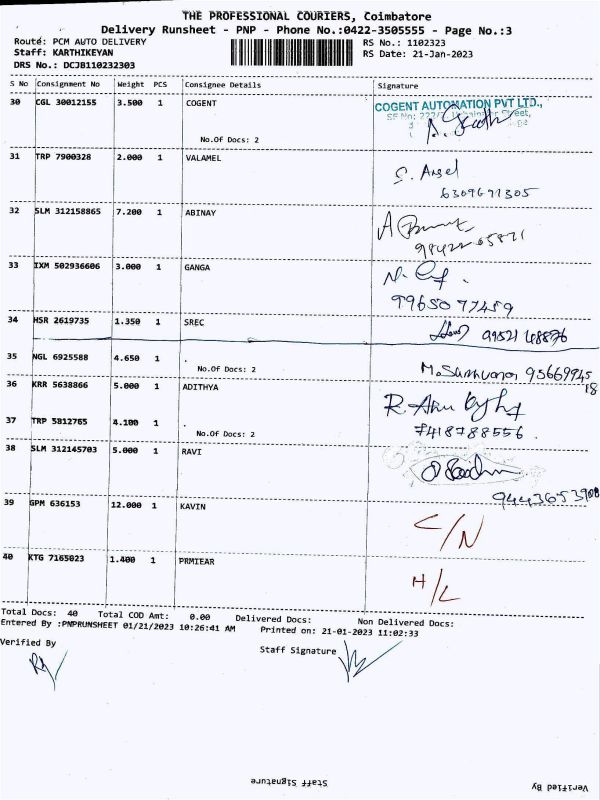 THE PROFESSIONAL COURIERS, Coimbatore
Delivery Runsheet - PNP - Phone No.:0422-3505555 - Page No.:3
Route: PCM AUTO DELIVERY RS No.: 1102323
Staff: KARTHIKEYAN RS Date: 21-Jan-2023
DRS No.: DCJB110232303
S No Consignment No Weight PCS Consignee Details Signature
30 CGL 30012155 3.500 1 COGENT
COGENT AUTOMATION PVT LTD.,
SF No: Street,
No.Of Docs: 2
31 TRP 7900328 2.000 1 VALAMEL
6309691305
32 SLM 312158865 7.200 1 ABINAY
33 IXM 502936606 3.000 1 GANGA
9965077459
34 HSR 2619735 1.350 1 SREC
35 NGL 6925588 4.650 1 .
No.Of Docs: 2
36 KRR 5638866 5.000 1 ADITHYA
7418788556
37 TRP 5812765 4.100 1 .
No.Of Docs: 2
38 SLM 312145703 5.000 1 RAVI
39 GPM 636153 12.000 1 KAVIN
C/N
40 KTG 7165023 1.400 1 PRMIEAR
H/L
Total Docs: 40 Total COD Amt: 0.00 Delivered Docs: Non Delivered Docs:
Entered By :PNPRUNSHEET 01/21/2023 10:26:41 AM Printed on: 21-01-2023 11:02:33
Verified By Staff Signature
Staff Signature Verified By